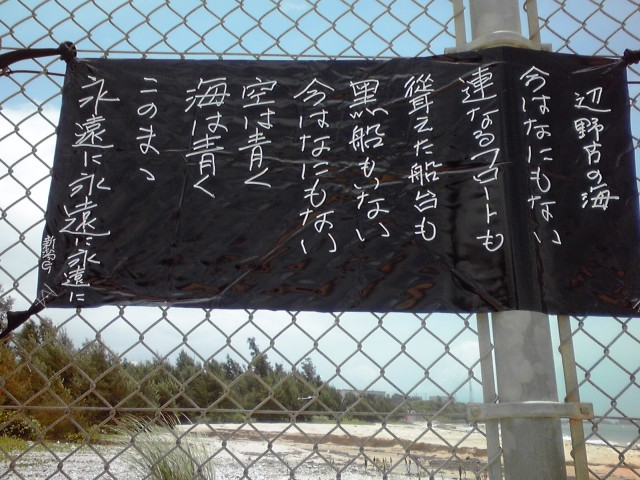 辺野古の海
今はなにもない
連なるフロートも
聳えた船台も
黒船もいない
今はなにもない
空は青く
海は青く
このまゝ
永遠に永遠に永遠に
新潟G